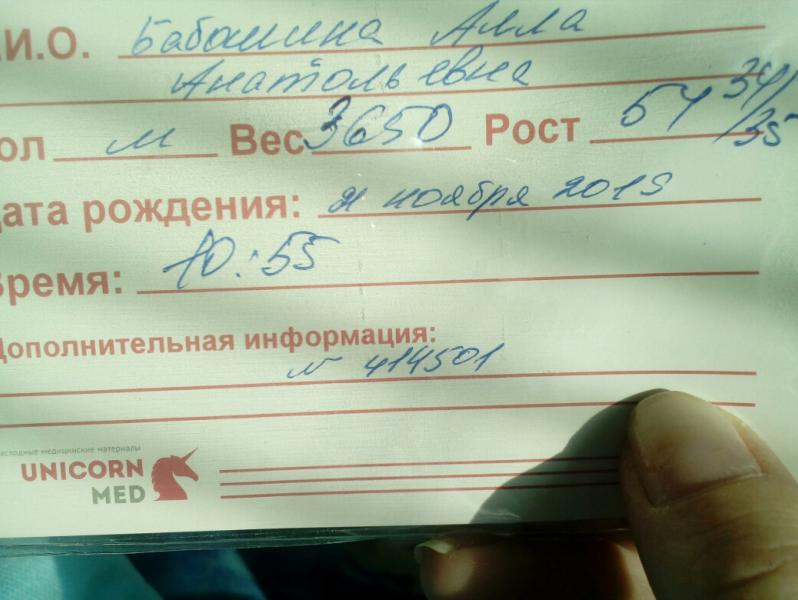 .И.О. Бабошина Алла
Анатольевна
ол м Вес 3650 Рост 54 34/35
ата рождения: 21 ноября 2019
ремя: 10:55
Дополнительная информация:
N 414501
асходные медицинские материалы
UNICORN
MED